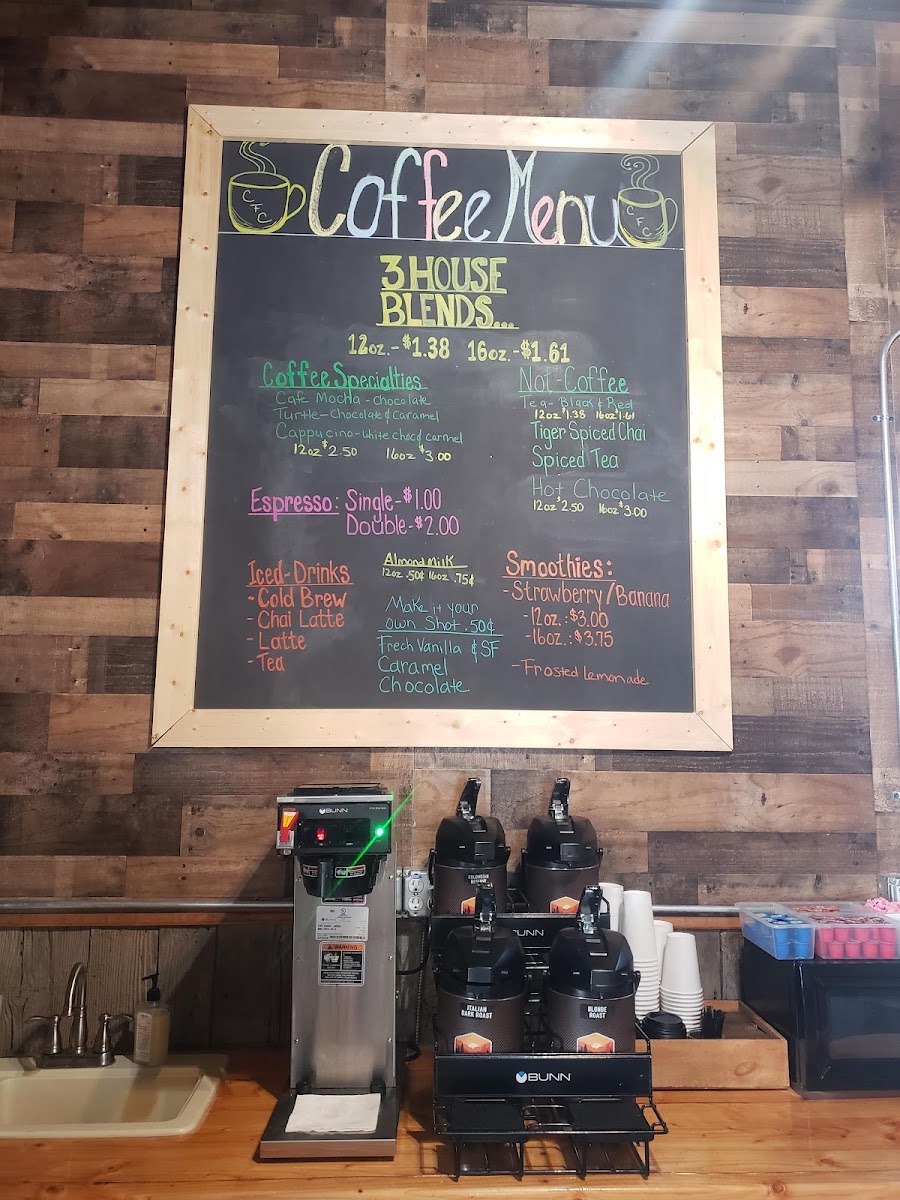 Coffee Menu
CFC
CFC
3 HOUSE
BLENDS...
12oz.-$1.38 16oz.-$1.61
Coffee Specialties
Cafe Mocha - chocolate
Turtle - chocolate & caramel
Cappucino - white choc & carmel
12oz $2.50 16oz $3.00
Not-Coffee
Tea - Black & Red
12oz $1.38 16oz $1.61
Tiger Spiced Chai
Spiced Tea
Hot Chocolate
12oz $2.50 16oz $3.00
Espresso: Single-$1.00
Double-$2.00
Iced-Drinks
- Cold Brew
- Chai Latte
- Latte
- Tea
Almond Milk
12oz .50¢ 16oz .75¢
Make it your
own Shot .50¢
Frech Vanilla & SF
Caramel
Chocolate
Smoothies:
- Strawberry/Banana
- 12oz.: $3.00
- 16oz.: $3.75
- Frosted Lemonade
BUNN
WARNING
COLOMBIAN
BUNN
ITALIAN
DARK ROAST
BLONDE
ROAST
BUNN